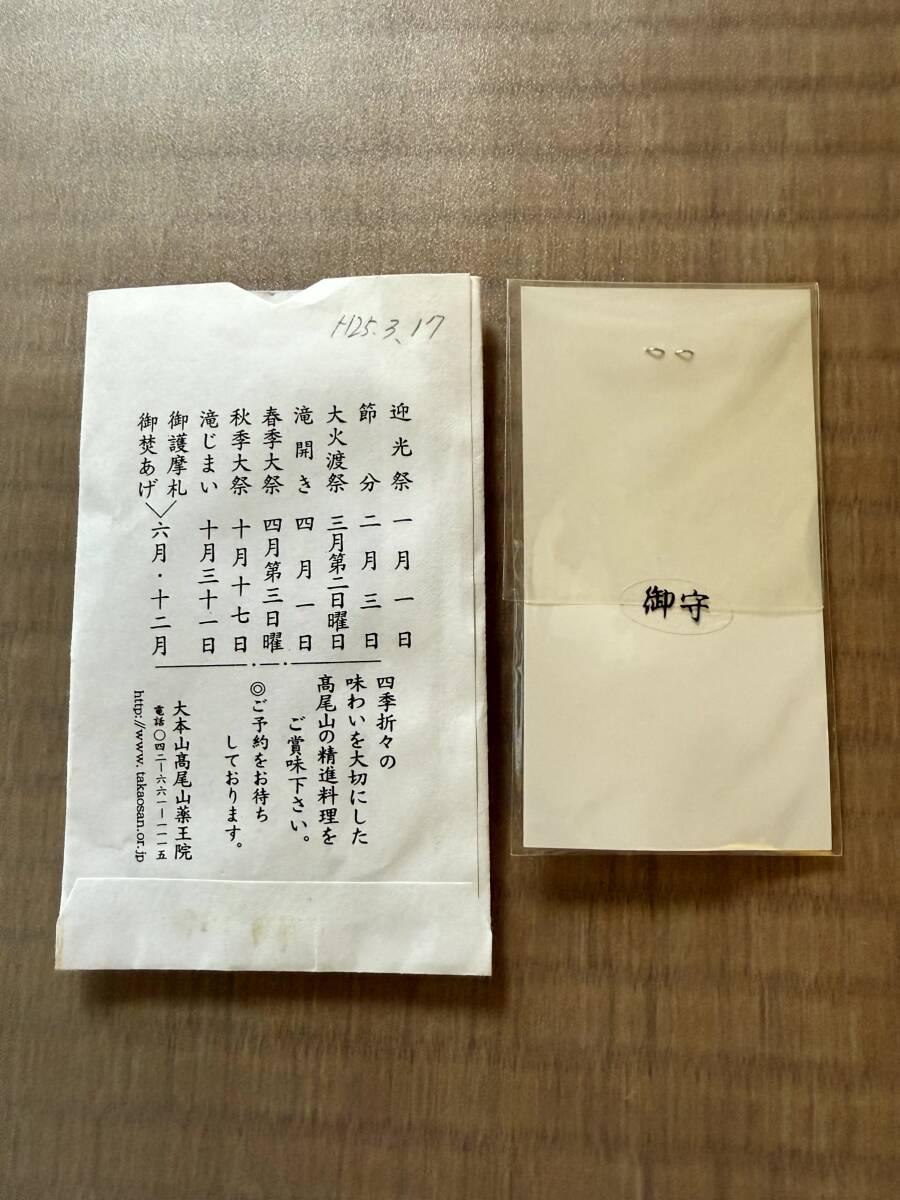 H25.3.17
迎光祭 一月一日
節分 二月三日
大火渡祭 三月第二日曜日
滝開き 四月一日
春季大祭 四月第三日曜
秋季大祭 十月十七日
滝じまい 十月三十一日
御護摩札
御焚あげ
六月・十二月
四季折々の
味わいを大切にした
髙尾山の精進料理を
ご賞味下さい。
◎ご予約をお待ち
しております。
大本山髙尾山薬王院
電話〇四二ー六六一ー一一一五
http://www.takaosan.or.jp
御守